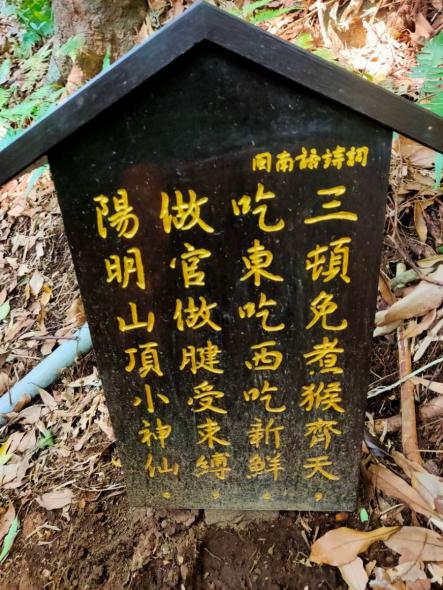 閩南語詩詞
三頓免煮猴齊天。
吃東吃西吃新鮮。
做官做腱受束縛。
陽明山頂小神仙。